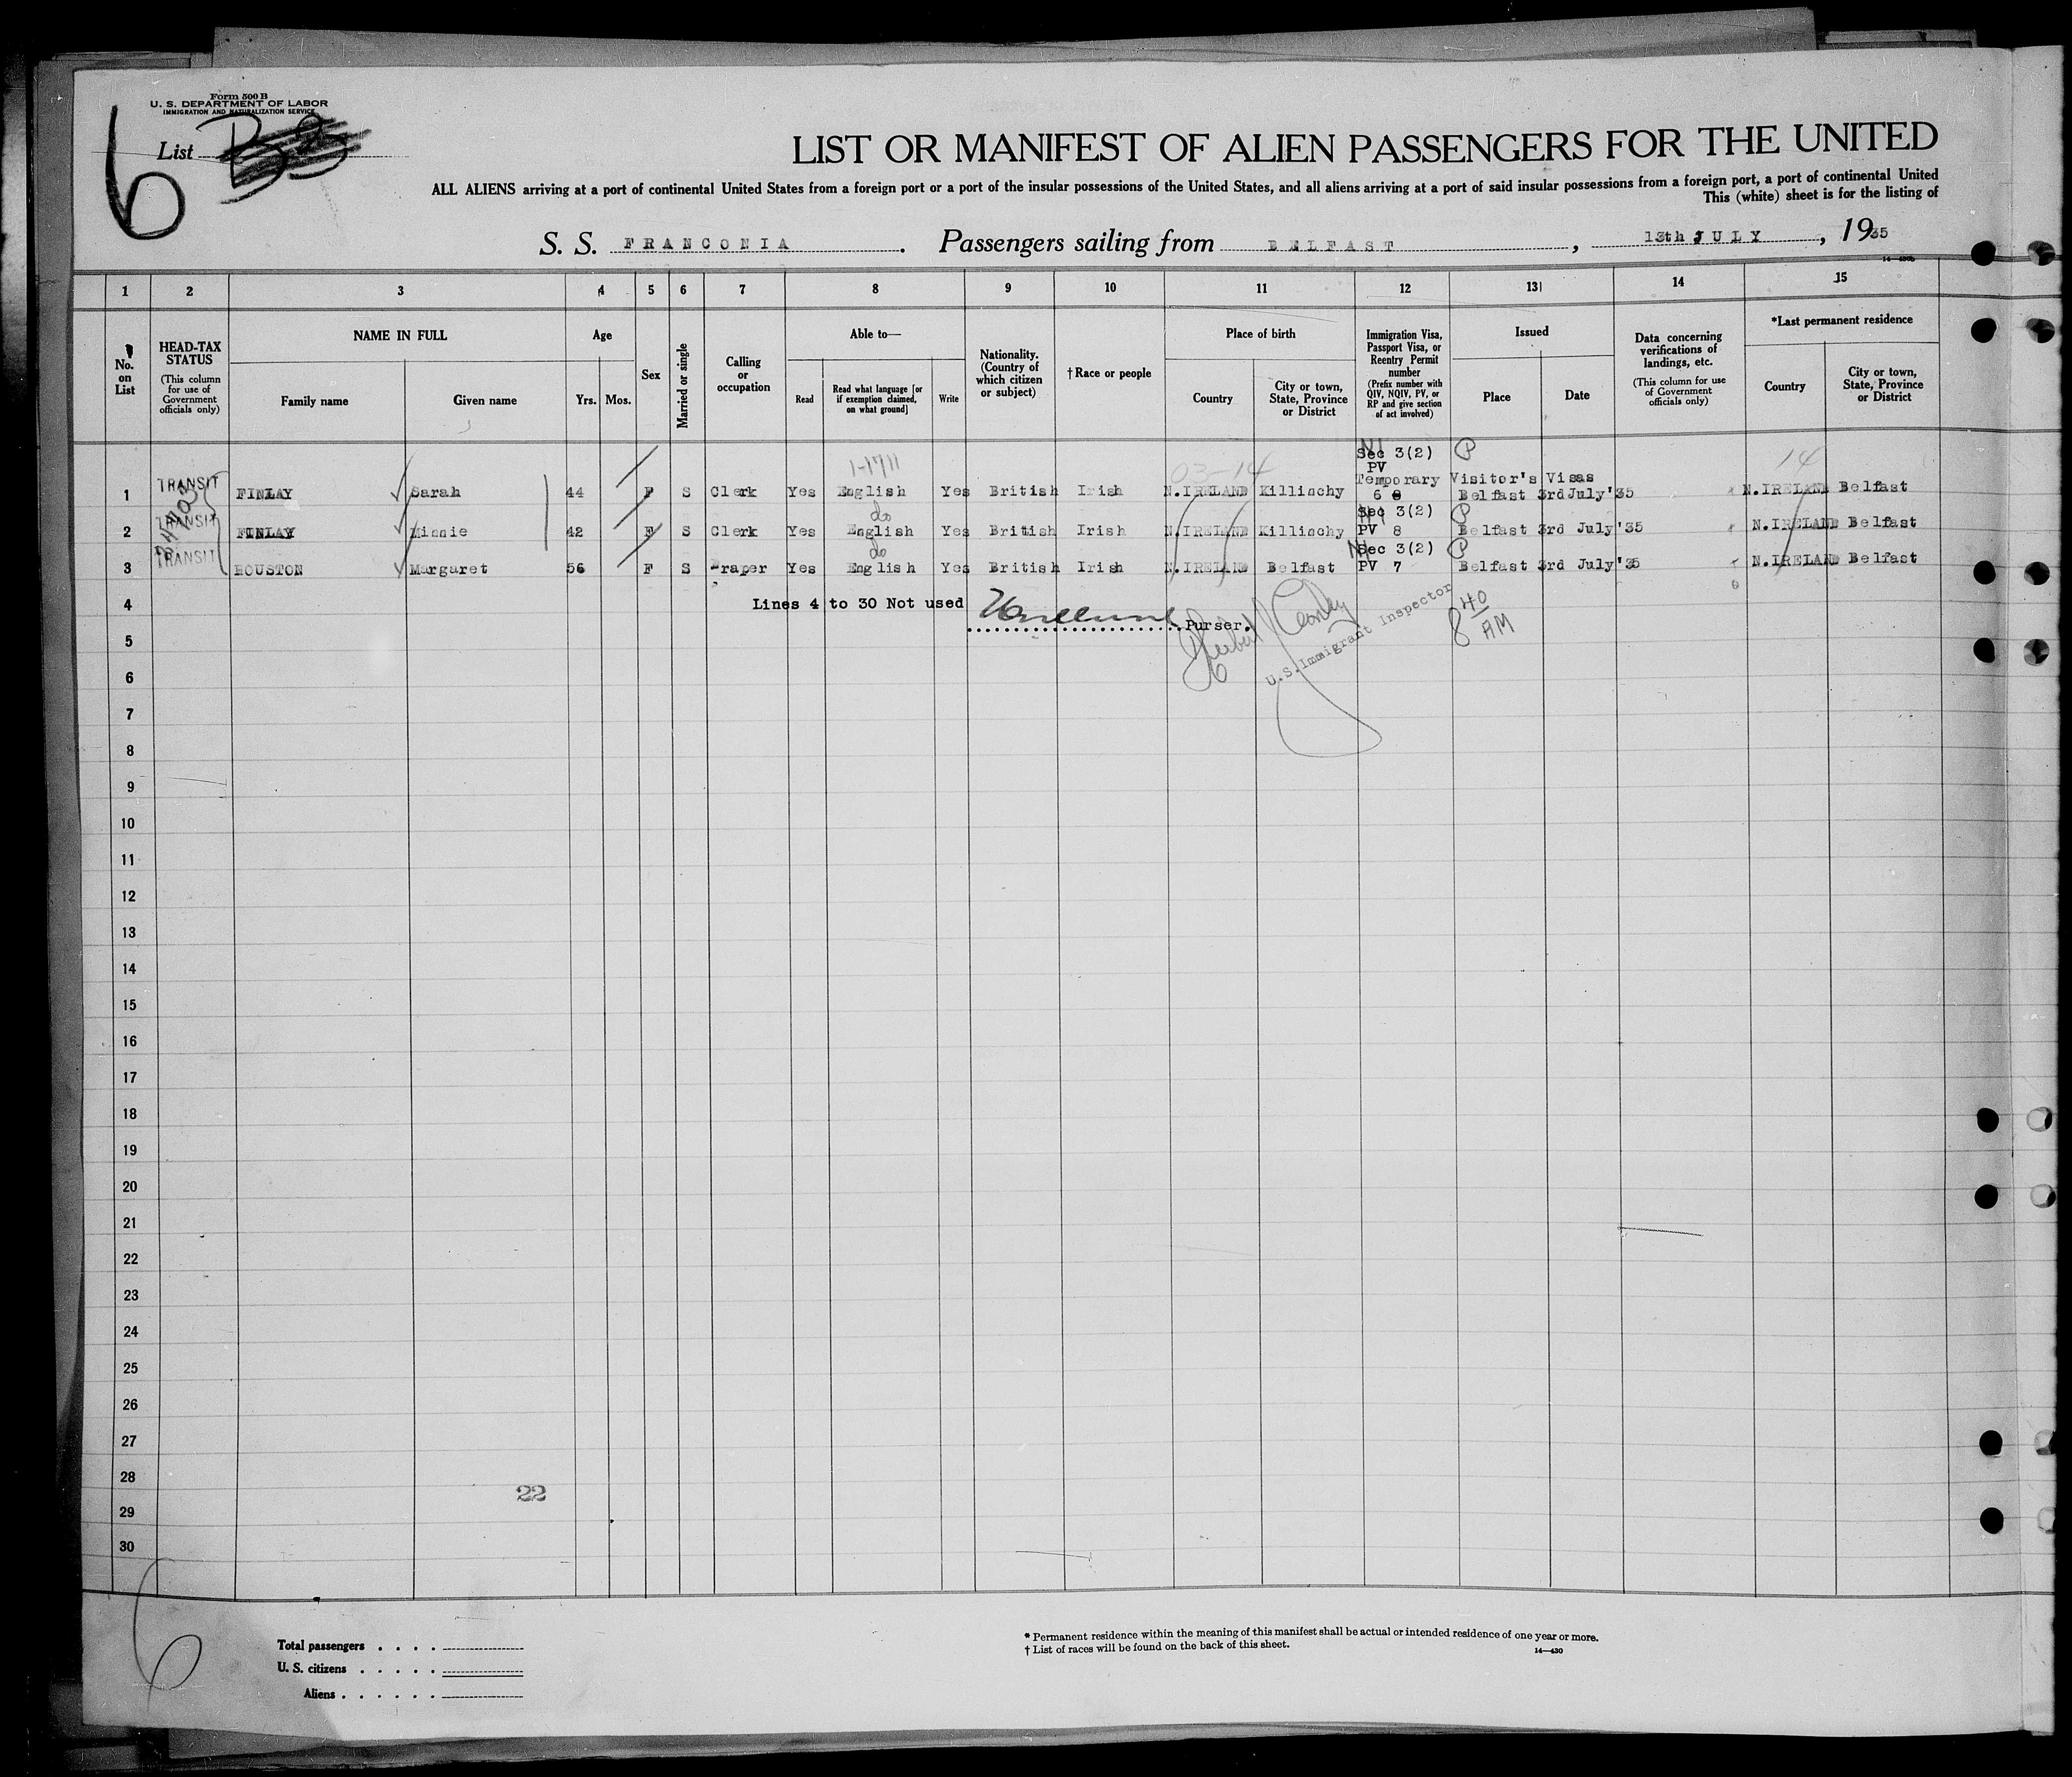 Form 500 B
U. S. DEPARTMENT OF LABOR
IMMIGRATION AND NATURALIZATION SERVICE
6
List
LIST OR MANIFEST OF ALIEN PASSENGERS FOR THE UNITED
ALL ALIENS arriving at a port of continental United States from a foreign port or a port of the insular possessions of the United States, and all aliens arriving at a port of said insular possessions from a foreign port, a port of continental United
This (white) sheet is for the listing of
S. S. FRANCONIA . Passengers sailing from BELFAST , 13th JULY , 1935
1 2 3 4 5 6 7 8 9 10 11 12 13 14 15
No. on List
HEAD-TAX STATUS (This column for use of Government officials only)
NAME IN FULL Family name Given name
Age Yrs. Mos.
Sex
Married or single
Calling or occupation
Able to— Read Read what language [or if exemption claimed, on what ground] Write
Nationality. (Country of which citizen or subject)
† Race or people
Place of birth Country City or town, State, Province or District
Immigration Visa, Passport Visa, or Reentry Permit number (Prefix number with QIV, NQIV, PV, or RP and give section of act involved)
Issued Place Date
Data concerning verifications of landings, etc. (This column for use of Government officials only)
*Last permanent residence Country City or town, State, Province or District
1-1711 03-14 Sec 3(2) P 14
PV
Temporary Visitor's Visas
1 TRANSIT FINLAY Sarah 44 F S Clerk Yes English Yes British Irish N.IRELAND Killinchy 6 Belfast 3rd July'35 N.IRELAND Belfast
do Sec 3(2) P
2 TRANSIT FINLAY Minnie 42 F S Clerk Yes English Yes British Irish N.IRELAND Killinchy PV 8 Belfast 3rd July'35 N.IRELAND Belfast
do Sec 3(2) P
3 TRANSIT HOUSTON Margaret 56 F S Draper Yes English Yes British Irish N.IRELAND Belfast PV 7 Belfast 3rd July'35 N.IRELAND Belfast
4 Lines 4 to 30 Not used
Purser.
U.S. Immigrant Inspector
8 40 AM
5
6
7
8
9
10
11
12
13
14
15
16
17
18
19
20
21
22
23
24
25
26
27
28
22
29
30
6
Total passengers . . . .
U. S. citizens . . . . .
Aliens . . . . . .
* Permanent residence within the meaning of this manifest shall be actual or intended residence of one year or more.
† List of races will be found on the back of this sheet.
14—430